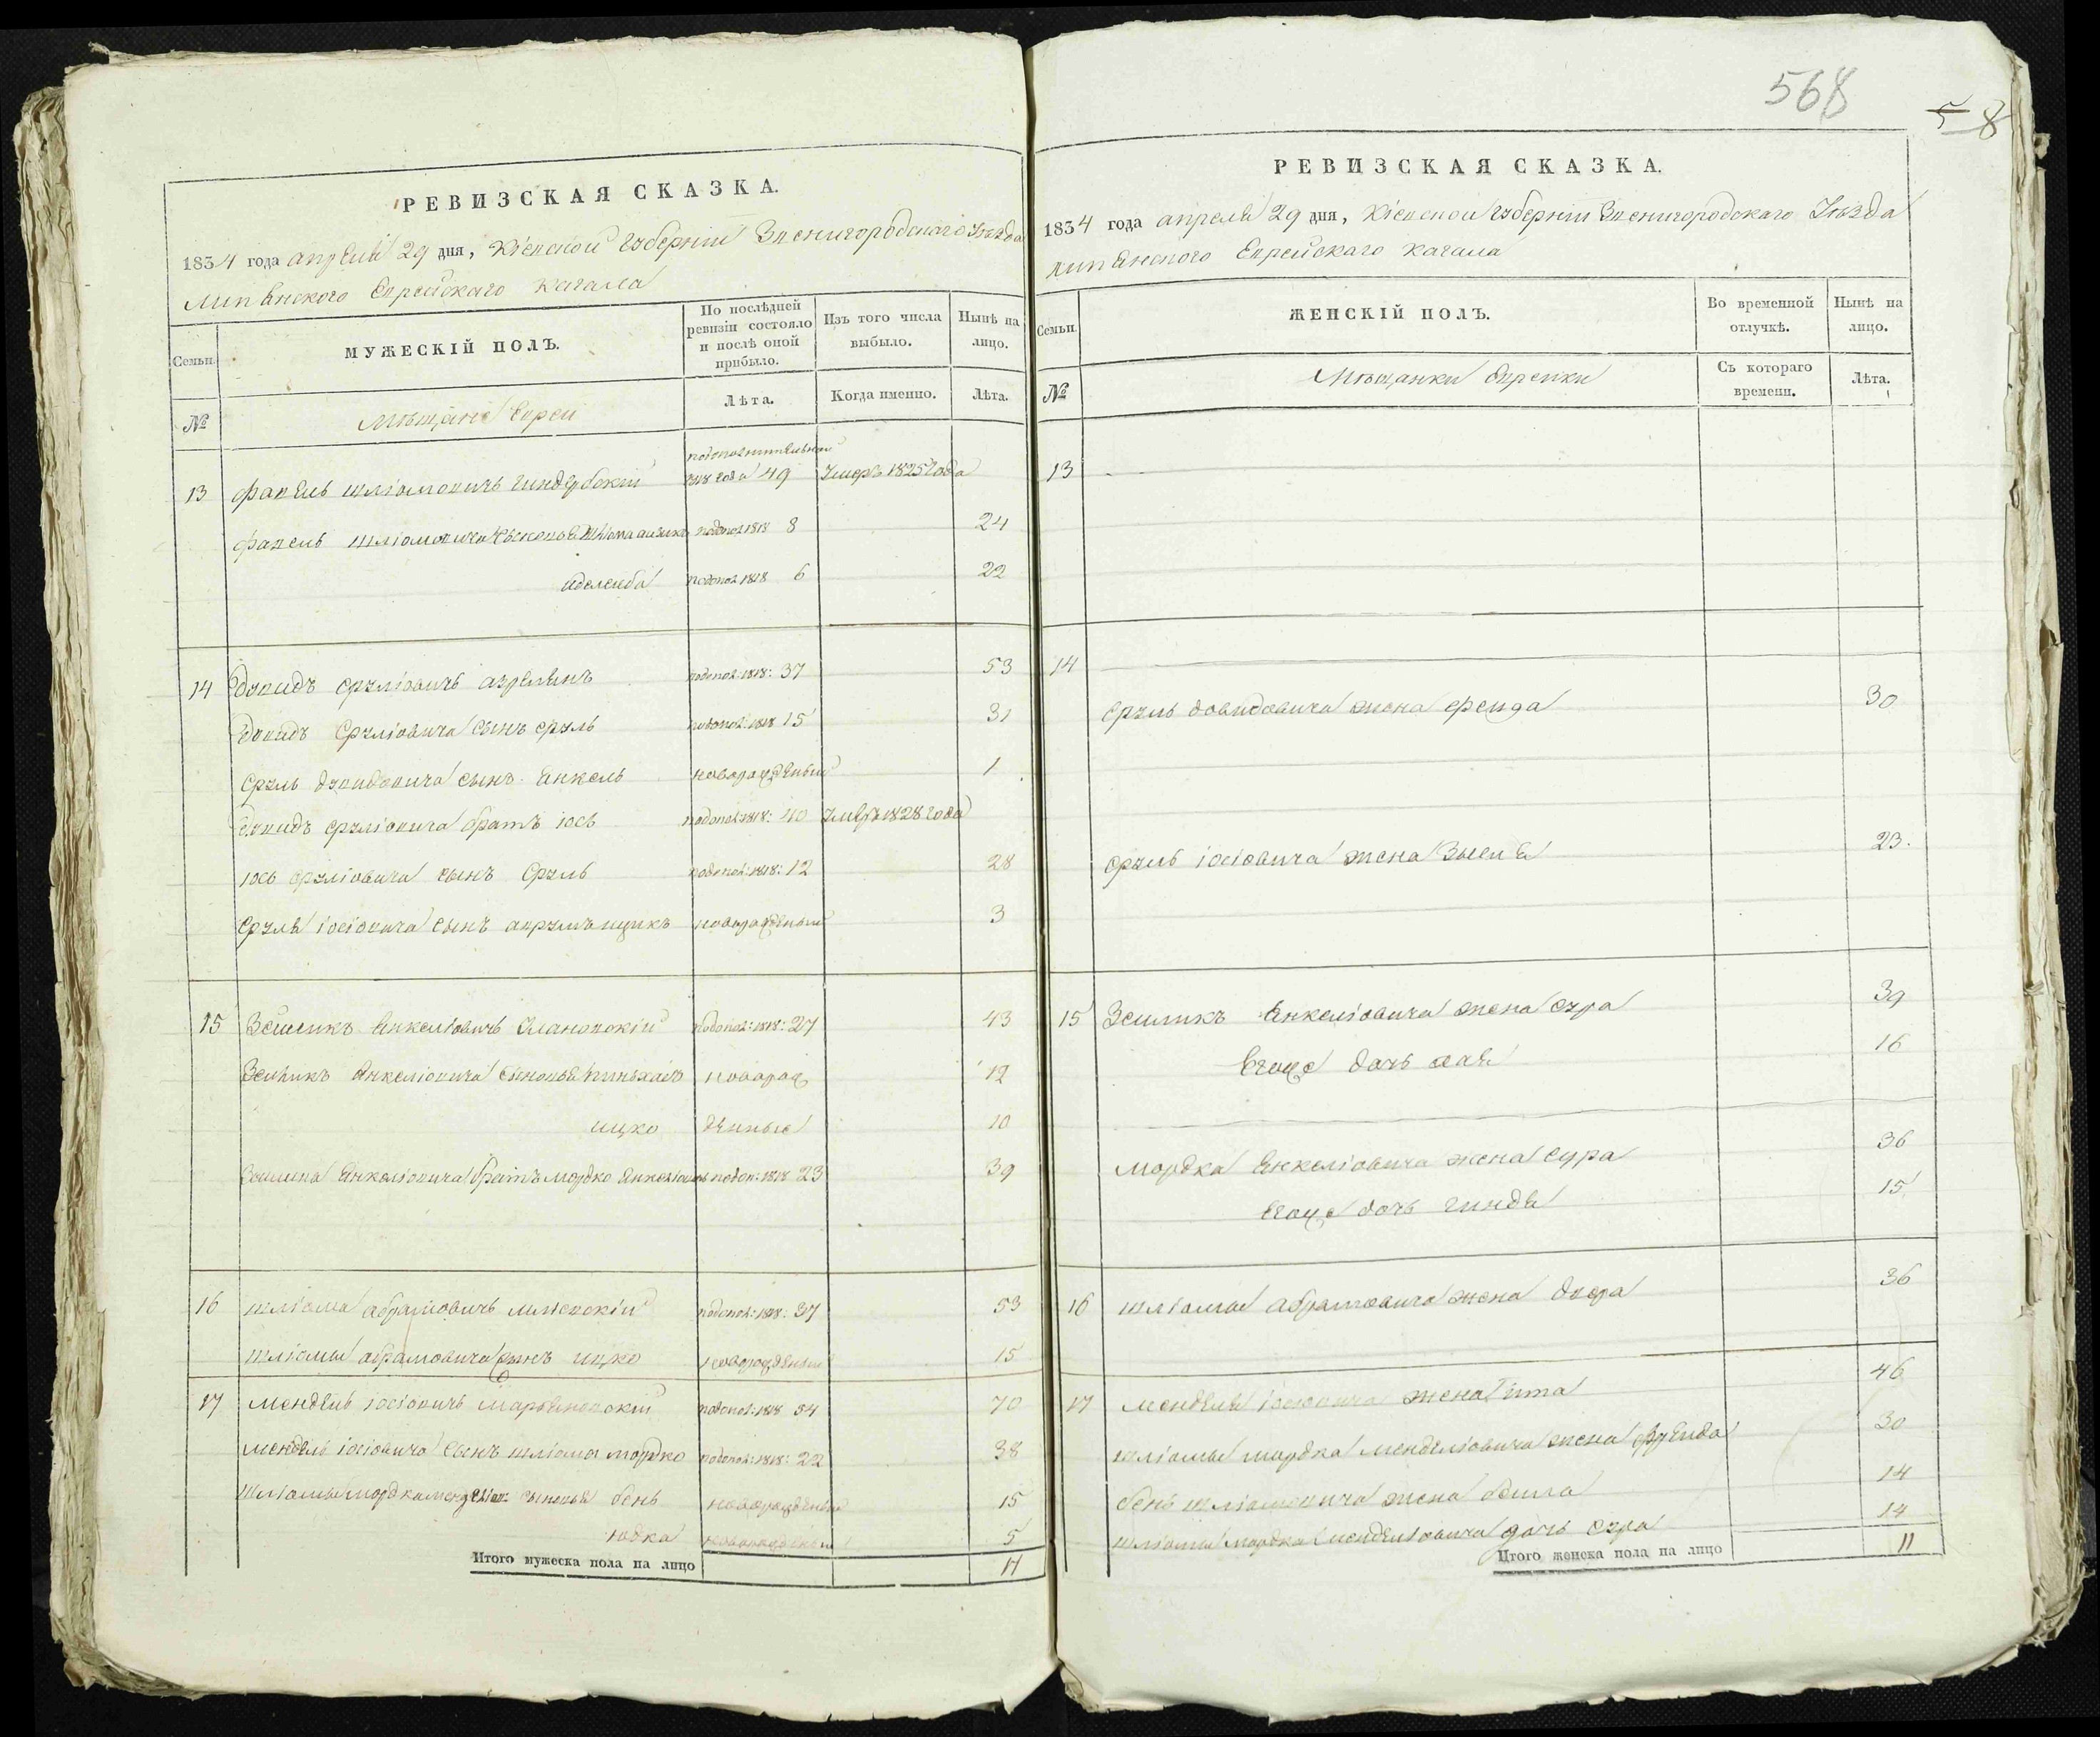 568
5 8
РЕВИЗСКАЯ СКАЗКА.
1834 года апреля 29 дня, Кіевской Губерніи Звенигородского Уезда
Липянского Еврейскаго Кагала
Семьи.
МУЖЕСКІЙ ПОЛЪ.
По послѣдней ревизіи состояло и послѣ оной прибыло.
Изъ того числа выбыло.
Нынѣ на лицо.
№
Мѣщане Евреи
Лѣта.
Когда именно.
Лѣта.
13 Фавель Шліомовичь 1818 года 49 Умеръ 1825 года
Фавель Шліомовича сыновья Шліома 1818 8 24
1818 6 22
14 Довидъ Срулiовичь 1818: 37 53
Довидъ Срулiовича сынъ Сруль 1818 15 31
Сруль Довидовича сынъ Янкель новорожденый 1
Довидъ Срулiовича братъ Іось 1818: 40 Умеръ 1828 года
Іось Срулiовича сынъ Сруль 1818: 12 28
Сруля Іосiовича сынъ Аврумъ Ицикъ новорожденый 3
15 Зейликъ Янкелiовичь Улановскiй 1818: 27 43
Зейликъ Янкелiовича сыновья Пиньхасъ новорож 12
Ицко денные 10
Янкелiовича братъ Мордко 1818 23 39
16 Шліома Абрамовичь 1818: 37 53
Шліомы Абрамовича сынъ Ицко новорожденый 15
17 Мендель Іосiовичь 1818 54 70
Мендель Іосiовича сынъ Шліома Мордко 1818: 22 38
Шліомы Мордка сыновья Бень новорожденый 15
Юдка новорожденый 5
Итого мужеска пола на лицо 17
РЕВИЗСКАЯ СКАЗКА.
1834 года апреля 29 дня, Кіевской Губерніи Звенигородского Уезда
Липянского Еврейскаго Кагала
Семьи.
ЖЕНСКІЙ ПОЛЪ.
Во временной отлучкѣ.
Нынѣ на лицо.
№
Мѣщанки Еврейки
Съ котораго времени.
Лѣта.
13
14
Сруль Довидовича жена Фейга 30
Сруль Іосiовича жена 23.
15 Зейликъ Янкелiовича жена Сура 39
Егоже дочь Хая 16
Мордка Янкелiовича жена Сура 36
Егоже дочь Гинда 15
16 Шліомы Абрамовича жена Двора 36
17 Менделя Іосiовича жена Ита 46
Шліомы Мордка Менделiовича жена Фрейда 30
Бень Шліомовича жена Бейла 14
Шліомы Мордка Менделiовича дочь Сура 14
Итого женска пола на лицо 11